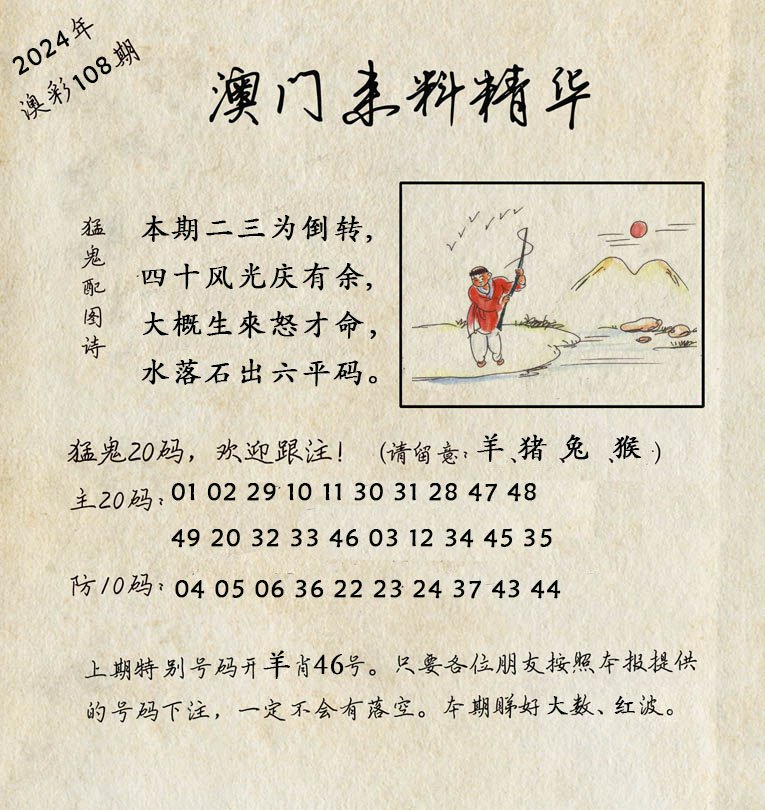 2024年
澳彩108期
澳门来料精华
猛鬼配图诗
本期二三为倒转,
四十风光庆有余,
大概生來怒才命,
水落石出六平码。
猛鬼20码，欢迎跟注！（请留意：羊、猪、兔、猴）
主20码：01 02 29 10 11 30 31 28 47 48
49 20 32 33 46 03 12 34 45 35
防10码：04 05 06 36 22 23 24 37 43 44
上期特别号码开羊肖46号。只要各位朋友按照本报提供
的号码下注，一定不会有落空。本期睇好大数、红波。